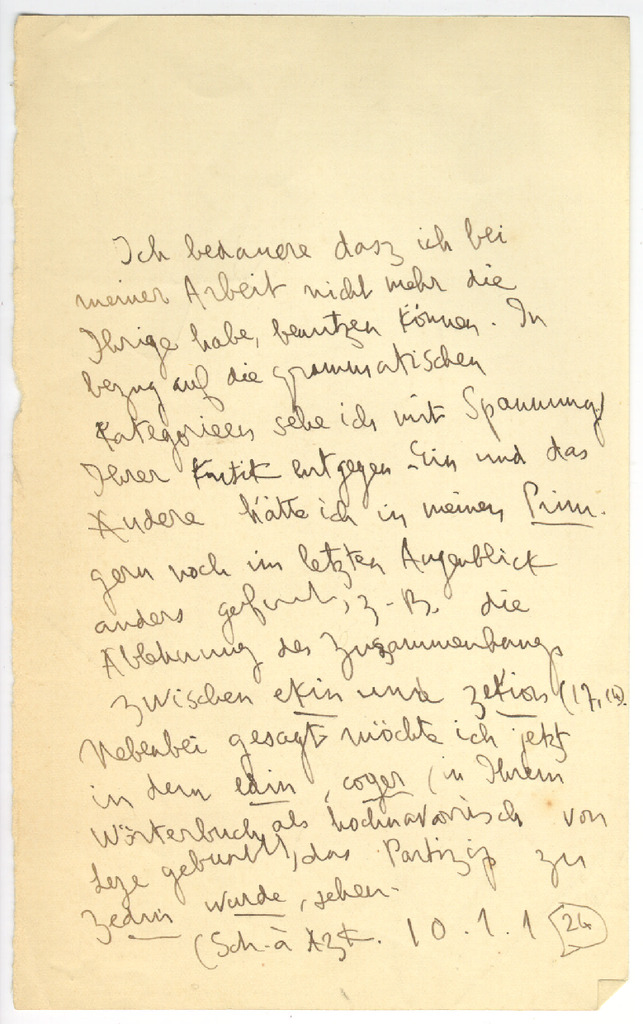 Ich bedauere dasz ich bei
meiner Arbeit nicht mehr die
Ihrige habe, benutzen können. In
bezug auf die grammatischen
Kategorieen sehe ich mit Spannung
Ihrer Kritik entgegen. Ein und das
Andere hätte ich in meinen Prim.
gern noch im letzten Augenblick
anders gefaszt, z. B. die
Ablehnung des Zusammenhangs
zwischen ekin und zekion (17, 14).
Nebenbei gesagt möchte ich jetzt
in dem edin, coger (in Ihrem
Wörterbuch als hochnavarrisch von
gebucht), das Partizip zu
zedin wurde, sehen.
(Sch. à Azk. 10.1.1 24